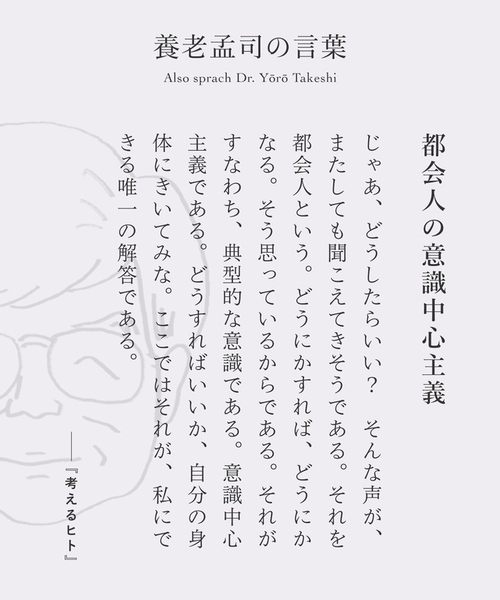 養老孟司の言葉
Also sprach Dr. Yōrō Takeshi
都会人の意識中心主義
じゃあ、どうしたらいい？　そんな声が、
またしても聞こえてきそうである。それを
都会人という。どうにかすれば、どうにか
なる。そう思っているからである。それが
すなわち、典型的な意識である。意識中心
主義である。どうすればいいか、自分の身
体にきいてみな。ここではそれが、私にで
きる唯一の解答である。
──『考えるヒト』